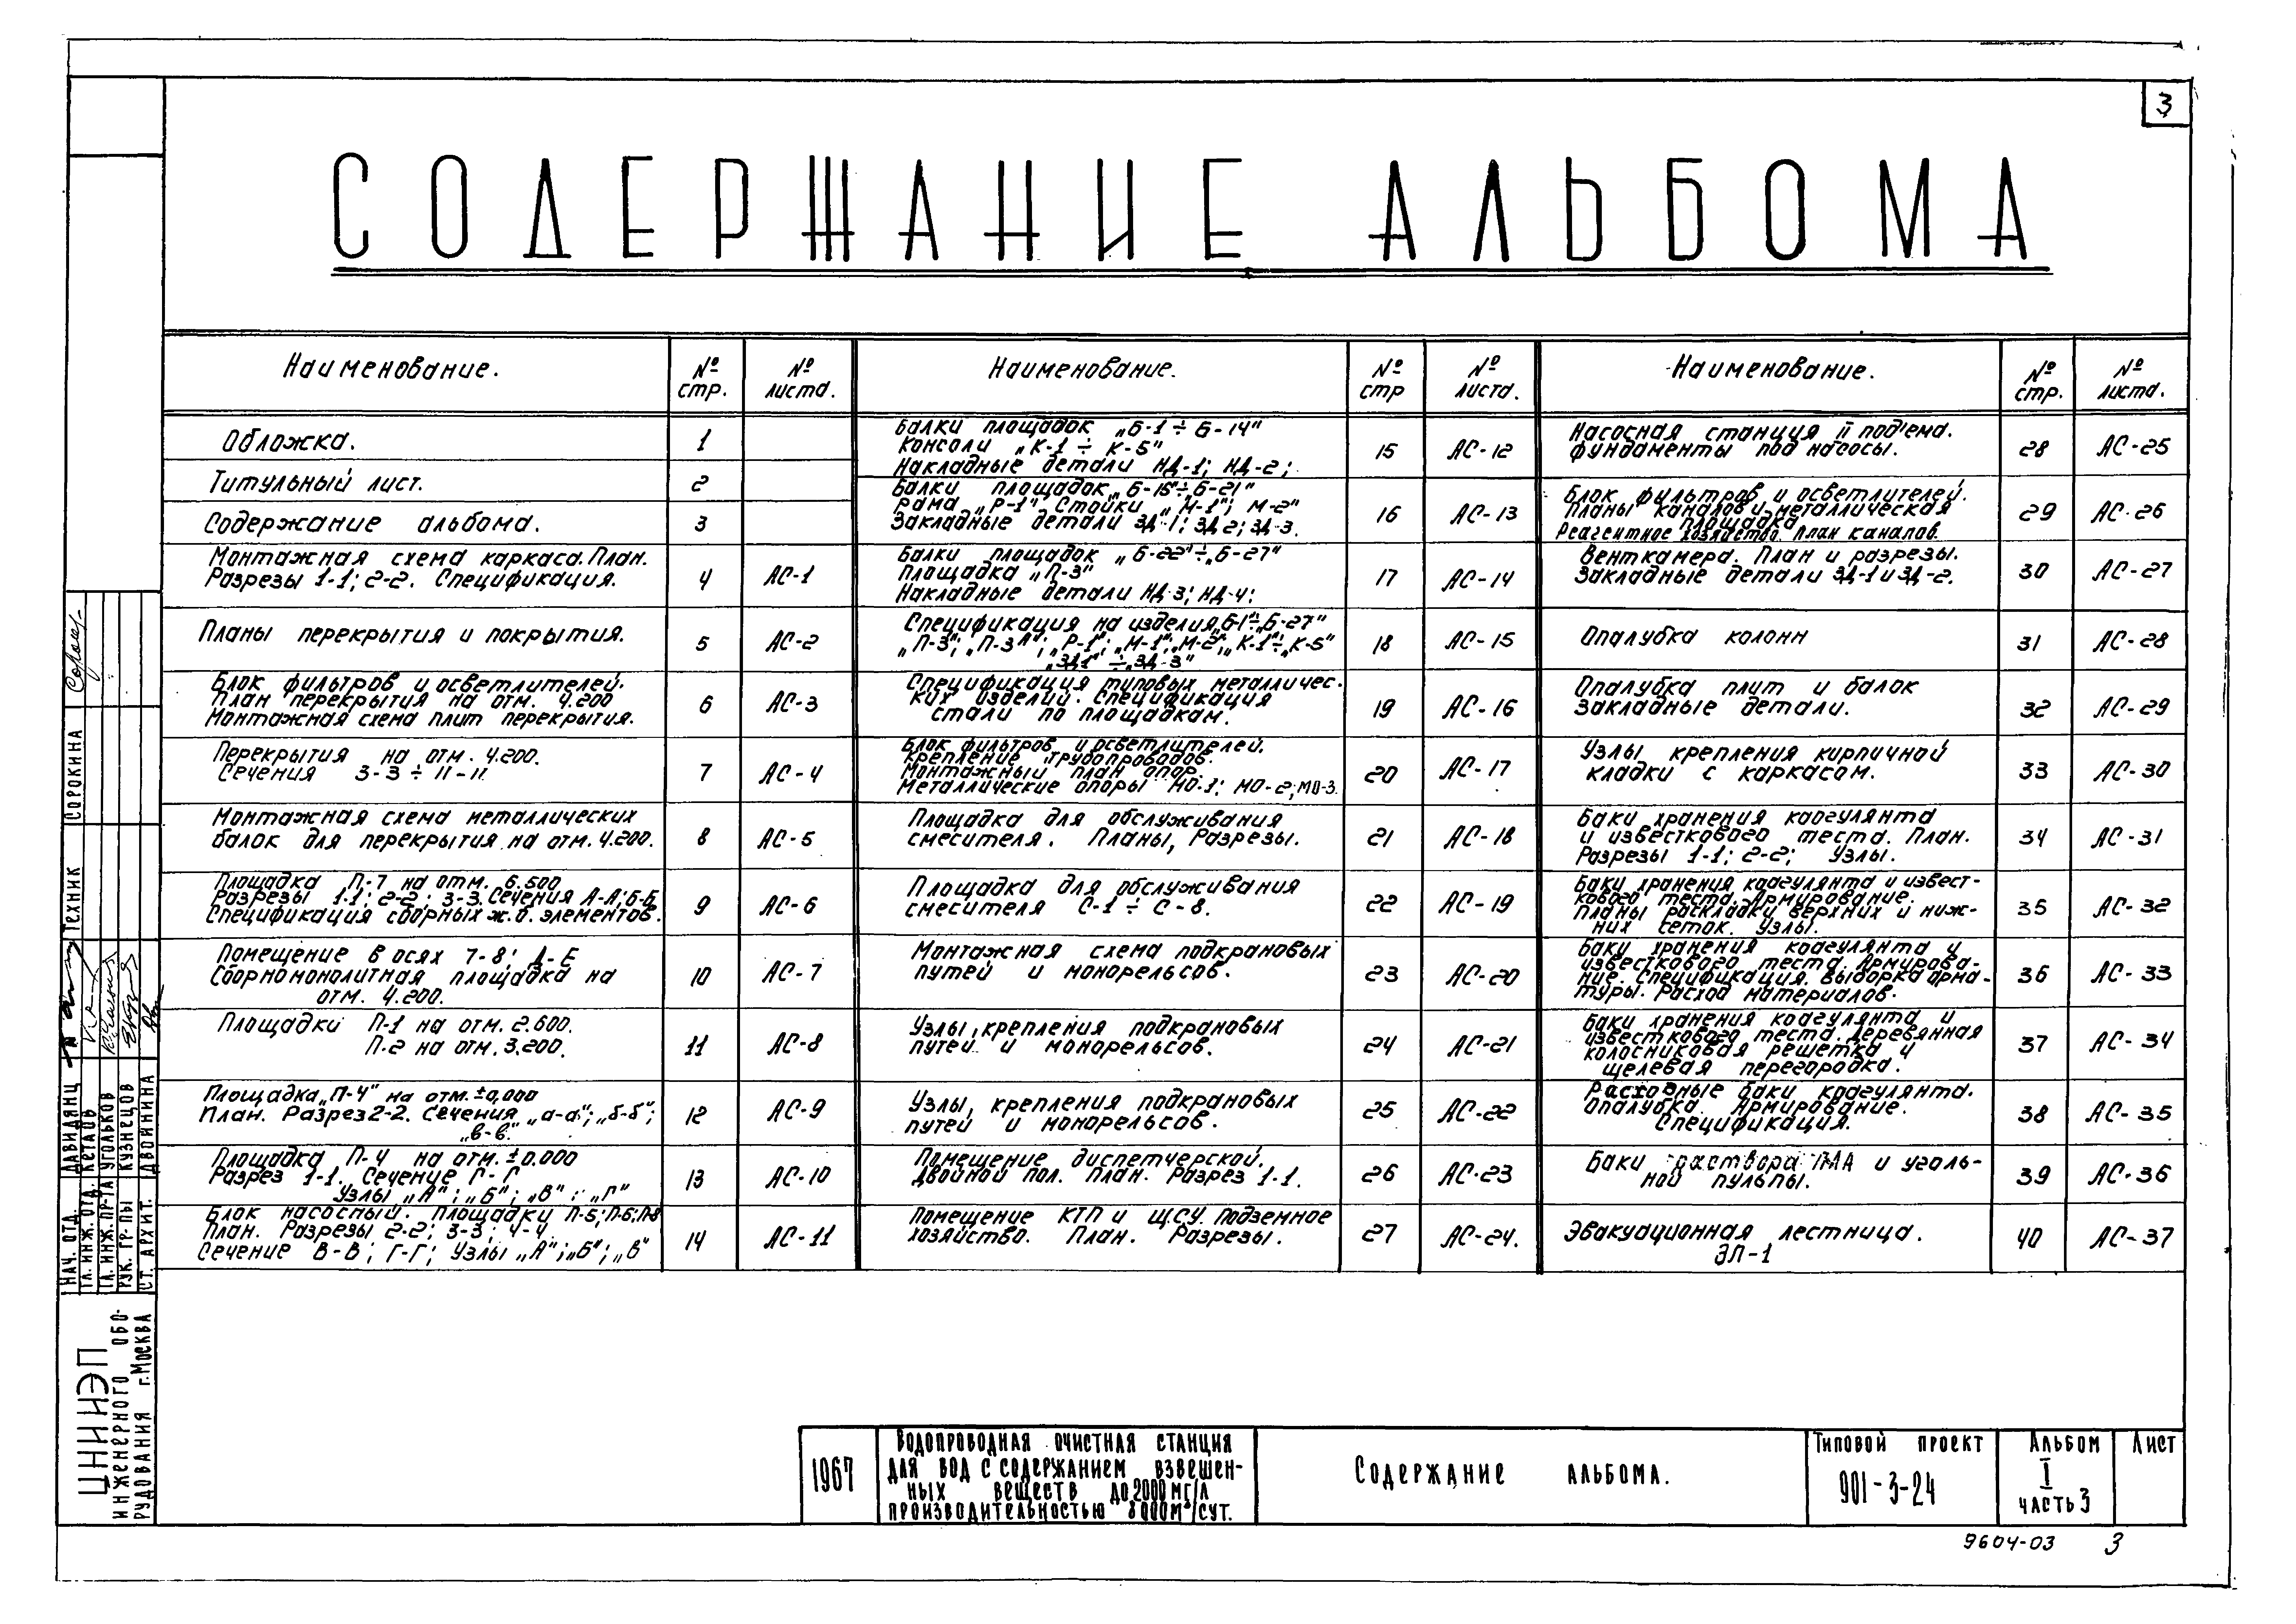 3
СОДЕРЖАНИЕ АЛЬБОМА
Наименование.
№
стр.
№
листа.
Обложка.
1
Титульный лист.
2
Содержание альбома.
3
Монтажная схема каркаса. План.
Разрезы 1-1; 2-2. Спецификация.
4
АС-1
Планы перекрытия и покрытия.
5
АС-2
Блок фильтров и осветлителей.
План перекрытия на отм. 4.200
Монтажная схема плит перекрытия.
6
АС-3
Перекрытия на отм. 4.200.
Сечения 3-3 ÷ 11-11.
7
АС-4
Монтажная схема металлических
балок для перекрытия на отм. 4.200.
8
АС-5
Площадка П-7 на отм. 6.500
Разрезы 1-1; 2-2; 3-3. Сечения А-А; Б-Б
Спецификация сборных ж.б. элементов.
9
АС-6
Помещение в осях 7-8; Д-Е
Сборномонолитная площадка на
отм. 4.200.
10
АС-7
Площадки П-1 на отм. 2.600.
П-2 на отм. 3.200.
11
АС-8
Площадка „П-4" на отм. ±0,000
План. Разрез 2-2. Сечения „а-а"; „б-б";
„в-в".
12
АС-9
Площадка П-4 на отм. ±0.000
Разрез 1-1. Сечение Г-Г
Узлы „А"; „Б"; „В"; „Г"
13
АС-10
Блок насосный. Площадки П-5; П-6; П-8
План. Разрезы 2-2; 3-3; 4-4.
Сечение В-В; Г-Г; Узлы „А"; „Б"; „В"
14
АС-11
Наименование.
№
стр
№
листа.
Балки площадок „Б-1 ÷ Б-14"
Консоли „К-1 ÷ К-5"
Накладные детали НД-1; НД-2;
15
АС-12
Балки площадок „Б-15" ÷ „Б-21"
Рама „Р-1" Стойки „М-1"; М-2"
Закладные детали ЗД-1; ЗД-2; ЗД-3.
16
АС-13
Балки площадок „Б-22" ÷ „Б-27"
Площадка „П-3"
Накладные детали НД-3; НД-4;
17
АС-14
Спецификация на изделия „Б-1" ÷ „Б-27"
„П-3"; „П-3А"; „Р-1"; „М-1"; „М-2"; „К-1" ÷ „К-5"
„ЗД1" ÷ „ЗД-3"
18
АС-15
Спецификация типовых металличес-
ких изделий. Спецификация
стали по площадкам.
19
АС-16
Блок фильтров и осветлителей.
Крепление трубопроводов.
Монтажный план опор.
Металлические опоры МО-1; МО-2; МО-3.
20
АС-17
Площадка для обслуживания
смесителя. Планы, Разрезы.
21
АС-18
Площадка для обслуживания
смесителя С-1 ÷ С-8.
22
АС-19
Монтажная схема подкрановых
путей и монорельсов.
23
АС-20
Узлы, крепления подкрановых
путей и монорельсов.
24
АС-21
Узлы, крепления подкрановых
путей и монорельсов.
25
АС-22
Помещение диспетчерской.
Двойной пол. План. Разрез 1-1.
26
АС-23
Помещение КТП и ЩСУ. Подземное
хозяйство. План. Разрезы.
27
АС-24.
Наименование.
№
стр.
№
листа.
Насосная станция II под'ема.
Фундаменты под насосы.
28
АС-25
Блок фильтров и осветлителей.
Планы каналов и металлическая
площадка
Реагентное хозяйство. План каналов.
29
АС-26
Венткамера. План и разрезы.
Закладные детали ЗД-1 и ЗД-2.
30
АС-27
Опалубка колонн
31
АС-28
Опалубка плит и балок
Закладные детали.
32
АС-29
Узлы крепления кирпичной
кладки с каркасом.
33
АС-30
Баки хранения коагулянта
и известкового теста. План.
Разрезы 1-1; 2-2; Узлы.
34
АС-31
Баки хранения коагулянта и извест-
кового теста. Армирование.
Планы раскладки верхних и ниж-
них сеток. Узлы.
35
АС-32
Баки хранения коагулянта и
известкового теста. Армирова-
ние. Спецификация. Выборка арма-
туры. Расход материалов.
36
АС-33
Баки хранения коагулянта и
известкового теста. Деревянная
колосниковая решетка и
щелевая перегородка.
37
АС-34
Расходные баки коагулянта.
Опалубка. Армирование.
Спецификация.
38
АС-35
Баки раствора ПАА и уголь-
ной пульпы.
39
АС-36
Эвакуационная лестница.
ЭЛ-1
40
АС-37
НАЧ. ОТД. ДАВИДЯНЦ
ГЛ. ИНЖ. ОТД. КЕТАОВ
ГЛ. ИНЖ. ПР-ТА УГОЛЬКОВ
РУК. ГР-ПЫ КУЗНЕЦОВ
СТ. АРХИТ. ДВОЙНИНА
ТЕХНИК СОРОКИНА
ЦНИИЭП
ИНЖЕНЕРНОГО ОБО-
РУДОВАНИЯ г. МОСКВА
1967
ВОДОПРОВОДНАЯ ОЧИСТНАЯ СТАНЦИЯ
ДЛЯ ВОД С СОДЕРЖАНИЕМ ВЗВЕШЕН-
НЫХ ВЕЩЕСТВ ДО 2000 МГ/Л
ПРОИЗВОДИТЕЛЬНОСТЬЮ 8000 М³/СУТ.
СОДЕРЖАНИЕ АЛЬБОМА.
ТИПОВОЙ ПРОЕКТ
901-3-24
АЛЬБОМ
I
ЧАСТЬ 3
ЛИСТ
9604-03 3